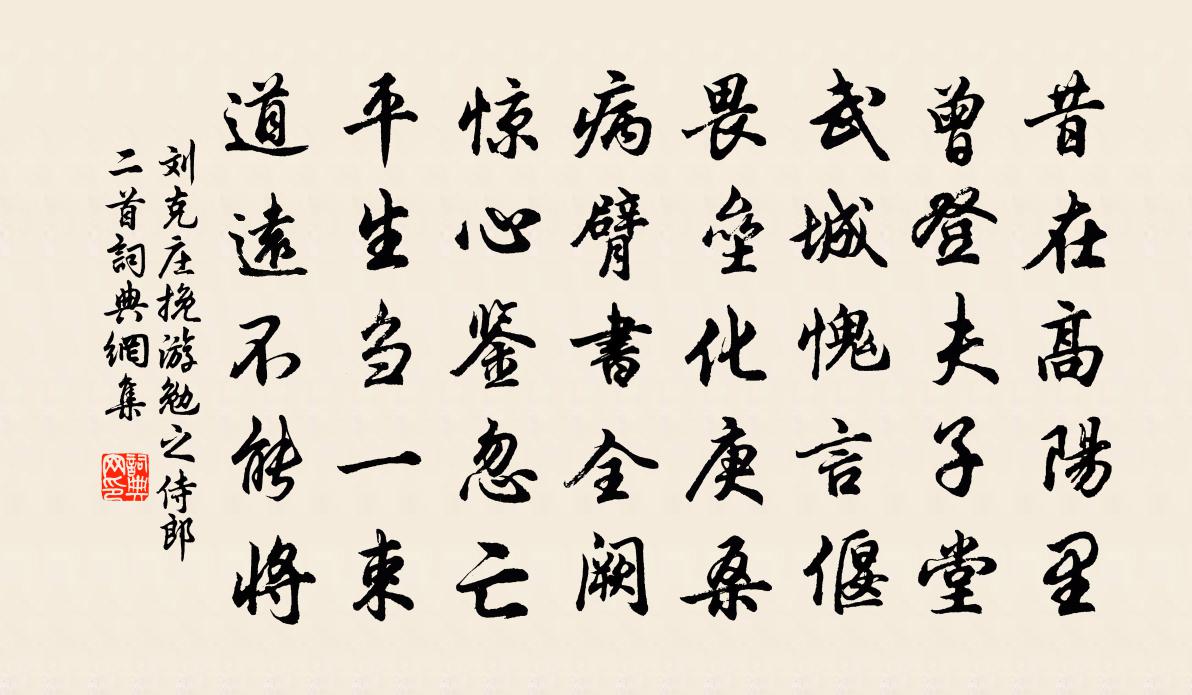 昔在高陽里
曾登夫子堂
武城愧言偃
畏壘化庚桑
病臂書全闕
惊心鉴忽亡
平生刍一束
道遠不能将
刘克庄挽游勉之侍郎
二首詞典網集
詞典
网印